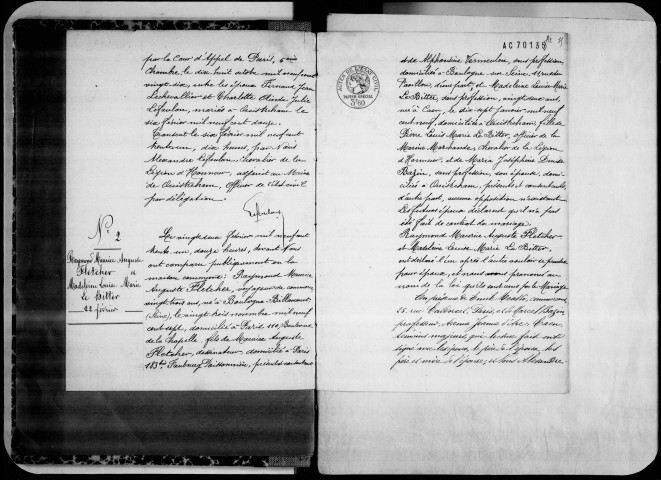 par la Cour d'Appel de Paris, 6ème
Chambre, le dix huit octobre mil neuf cent
vingt six, entre les époux Fernand Jean
Lechevallier et Charlotte Julie
Lefoulon, mariés à Ouistreham le
six février mil neuf cent douze.
Transcrit le six février mil neuf cent
trente un, dix heures, par Nous
Alexandre Lefoulon, Chevalier de la
Légion d'Honneur, adjoint au Maire
de Ouistreham, Officier de l'état civil
par délégation.
Lefoulon
N° 2
Raymond Maurice Auguste
Fletcher et
Madeleine Louise Marie
Le Bitter
22 février
Le vingt deux février mil neuf cent
trente un, douze heures, devant Nous
ont comparu publiquement en la
maison commune: Raymond Maurice
Auguste Fletcher, voyageur de commerce
vingt trois ans, né à Boulogne Billancourt,
(Seine), le vingt trois novembre mil neuf
cent sept, domicilié à Paris 110, Boulevard
de la Chapelle, fils de Maurice Auguste
Fletcher, dessinateur, domicilié à Paris
183bis Faubourg Poissonnière, présent et consentant
AC 70135
ACTES DE L'ÉTAT CIVIL
PAPIER SPÉCIAL
et de Alphonsine Vermeulen, sans profession,
domiciliée à Boulogne sur Seine,
d'une part, et Madeleine Louise Marie
Le Bitter, sans profession, vingt deux ans
née à Caen, le dix sept janvier mil neuf
cent neuf, domiciliée à Ouistreham, fille de
Pierre Louis Marie Le Bitter, officier de la
Marine Marchande, Chevalier de la Légion
d'Honneur, et de Maria Joséphine
Bazin, sans profession, son épouse, domi-
ciliés à Ouistreham, présents et consentants,
d'autre part, aucune opposition n'existant.
Les futurs époux déclarent qu'il n'a pas
été fait de contrat de mariage.
Raymond Maurice Auguste Fletcher
et Madeleine Louise Marie Le Bitter,
ont déclaré l'un après l'autre vouloir se prendre
pour époux, et nous avons prononcé au
nom de la loi qu'ils sont unis par le Mariage
En présence de
25, rue Paris, et de Marcel Bazin
professeur, Caen
témoins majeurs qui, lecture faite ont
signé avec les époux, le père de l'époux, les
père et mère de l'épouse, et Nous Alexandre